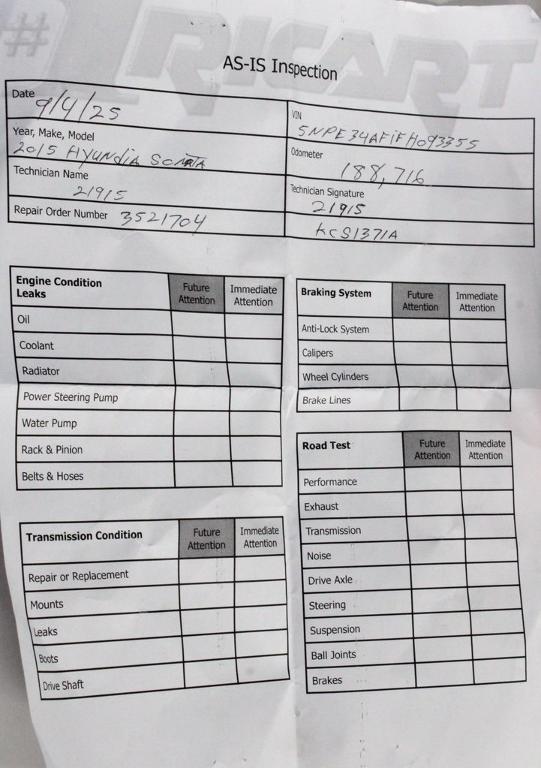 #TRICART
AS-IS Inspection
Date 9/4/25
VIN 5NPE34AF1FH093355
Year, Make, Model 2015 Hyundia Sonata
Odometer 188,716
Technician Name 21915
Technician Signature 21915
Repair Order Number 3521704
KCS1371A
Engine Condition Leaks Future Attention Immediate Attention
Oil
Coolant
Radiator
Power Steering Pump
Water Pump
Rack & Pinion
Belts & Hoses
Transmission Condition Future Attention Immediate Attention
Repair or Replacement
Mounts
Leaks
Boots
Drive Shaft
Braking System Future Attention Immediate Attention
Anti-Lock System
Calipers
Wheel Cylinders
Brake Lines
Road Test Future Attention Immediate Attention
Performance
Exhaust
Transmission
Noise
Drive Axle
Steering
Suspension
Ball Joints
Brakes